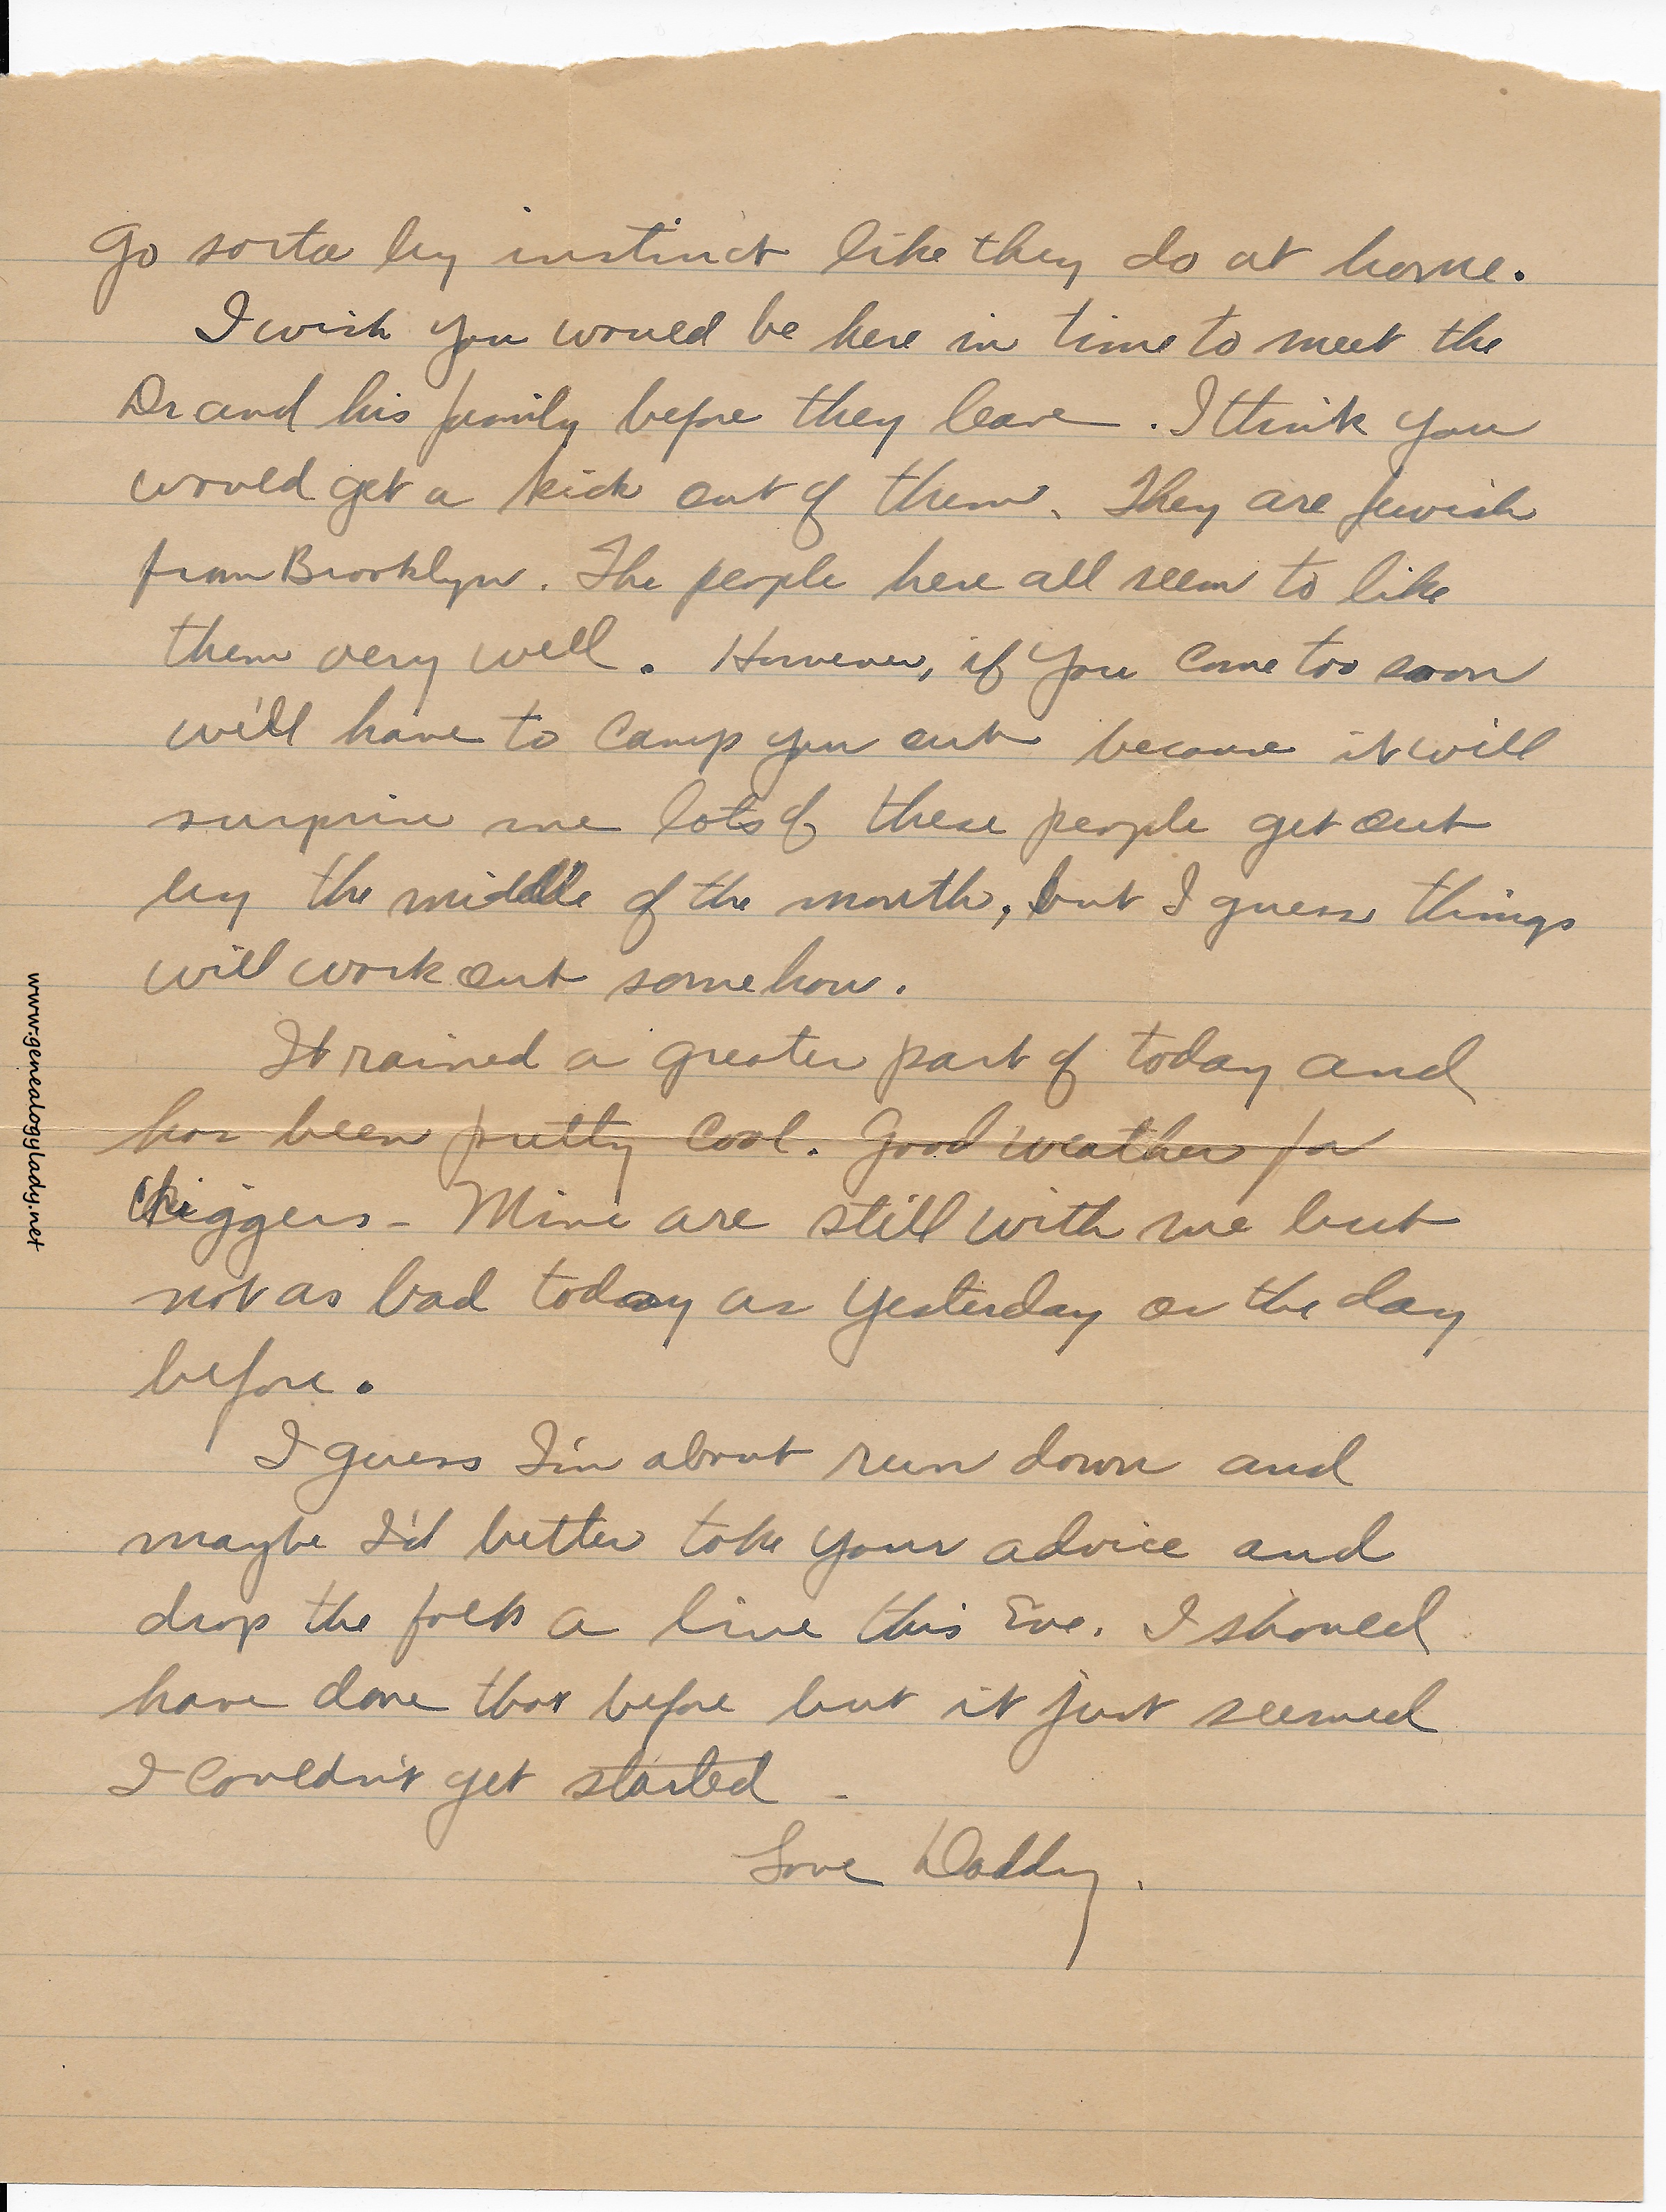 Go sorta by instinct like they do at home.
I wish you would be here in time to meet the
Dr and his family before they leave. I think you
would get a kick out of them. They are Jewish
from Brooklyn. The people here all seem to like
them very well. However, if you come too soon
we'll have to camp you out because it will
surprise me lots of these people get out
by the middle of the month, but I guess things
will work out somehow.
It rained a greater part of today and
has been pretty cool. Good weather for
Chiggers - Mine are still with me but
not as bad today as yesterday or the day
before.
I guess I'm about run down and
maybe I'd better take your advice and
drop the folks a line this Eve. I should
have done that before but it just seemed
I couldn't get started -
Love Daddy.
www.genealogylady.net